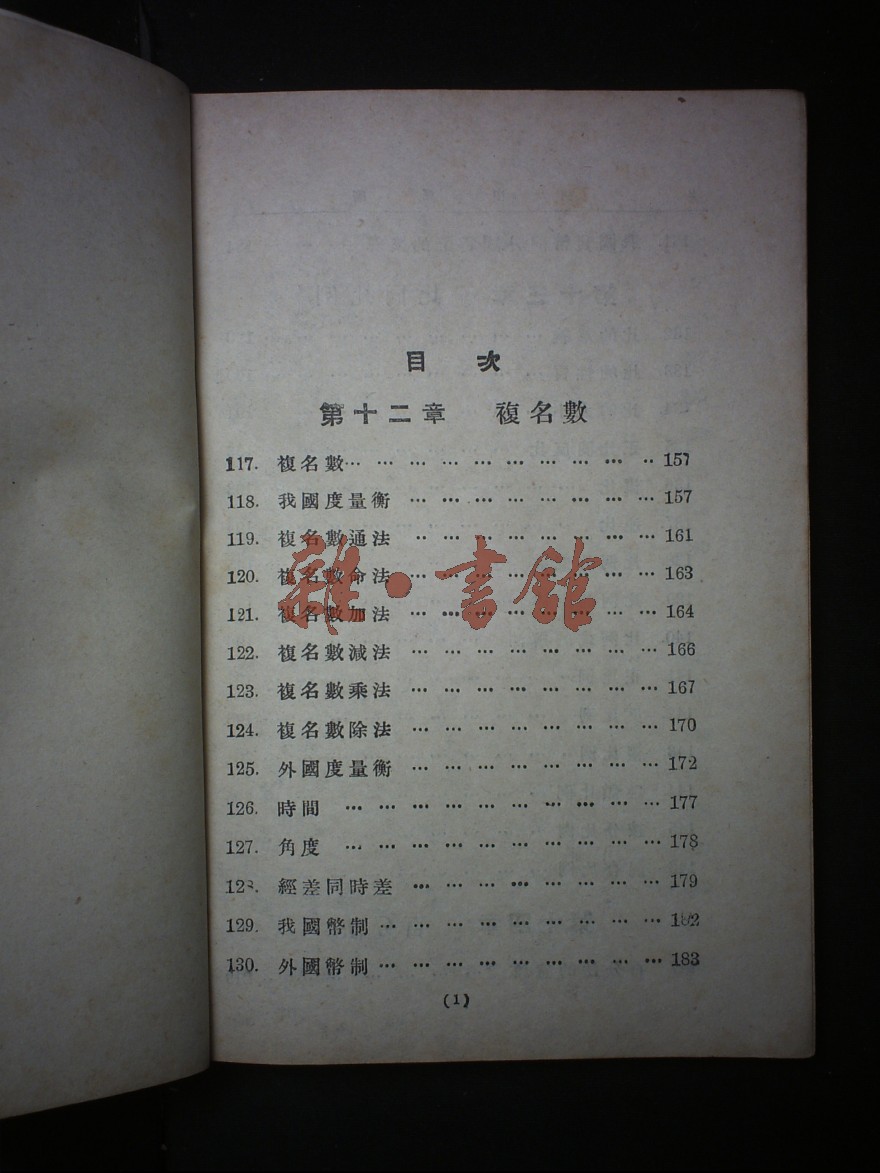 目 次
第十二章 複名數
117. 複名數… … … … … … … … … ‥ 157
118. 我國度量衡 … … … … … … … … 157
119. 複名數通法 ‥ … … … … … … … 161
120. 複名數命法 … … … … … … … … 163
121. 複名數加法 … … … … … … … … 164
122. 複名數減法 … … … … … … … … 166
123. 複名數乘法 … … … … … … … … 167
124. 複名數除法 … … … … … … … … 170
125. 外國度量衡 … … … … … … … … 172
126. 時間 … … … … … … … … … … 177
127. 角度 … … … … … … … … … … 178
128. 經差同時差 … … … … … … … … 179
129. 我國幣制 … … … … … … … … … 182
130. 外國幣制 … … … … … … … … … 183
(1)
雜·書館